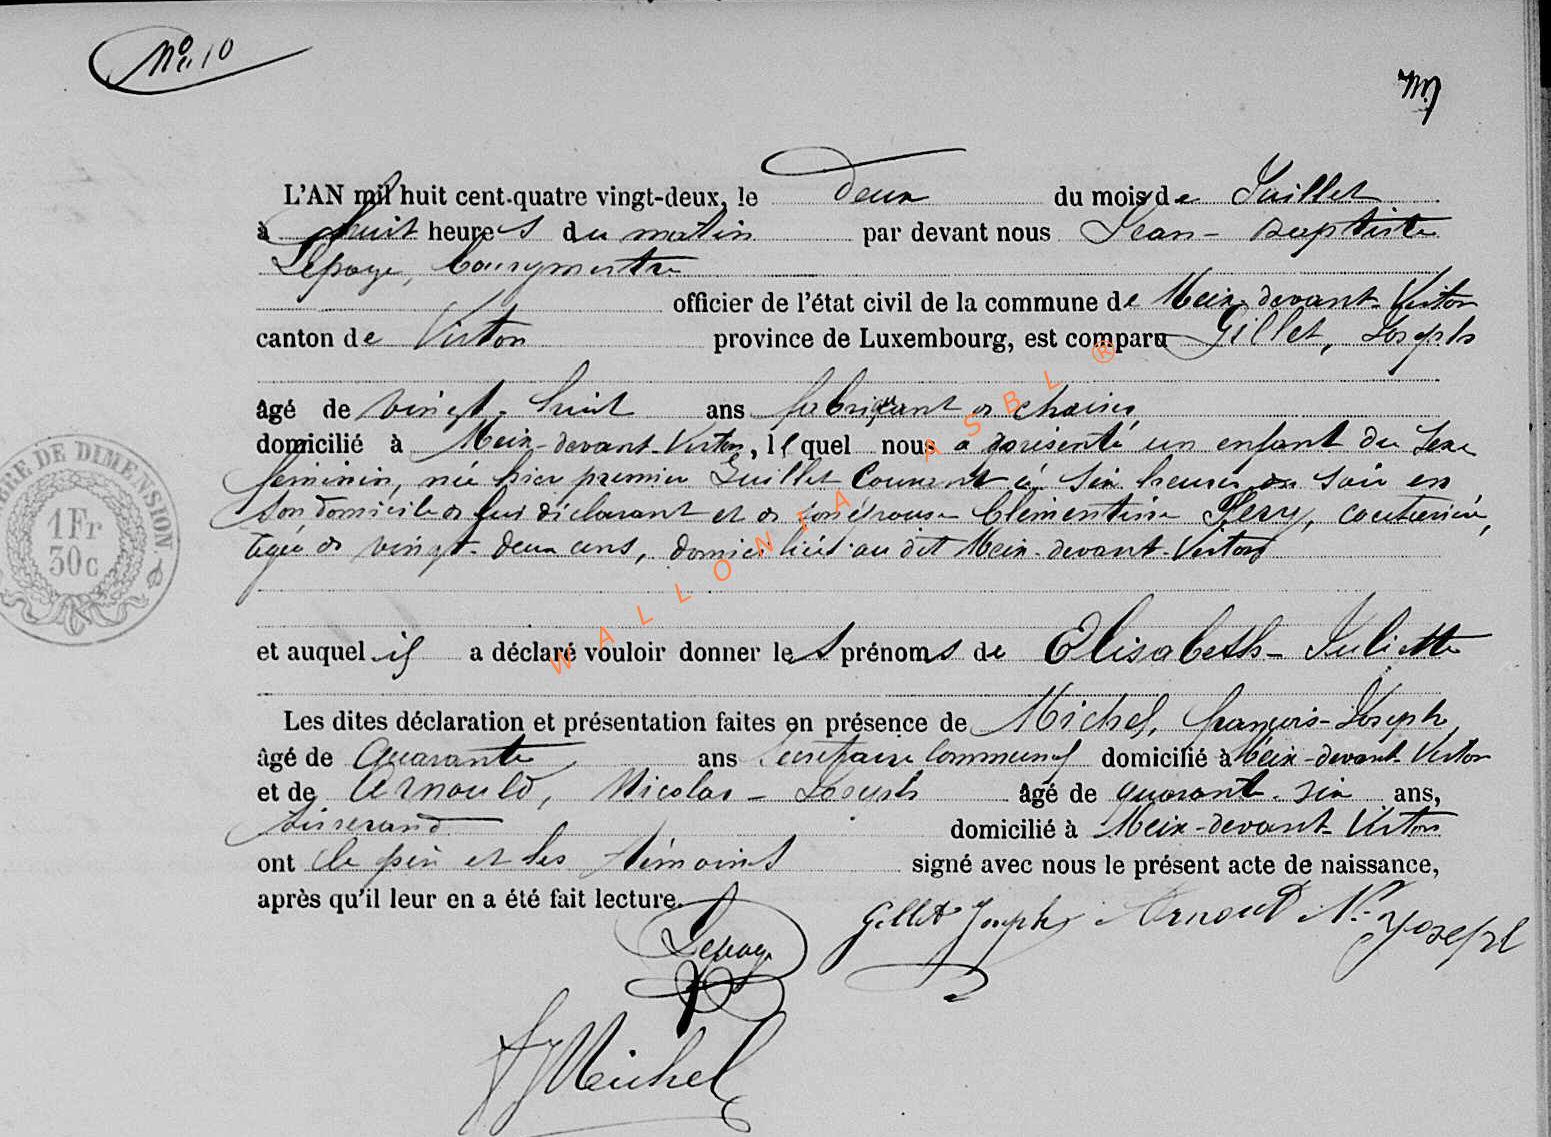 No. 10
L'AN mil huit cent-quatre vingt-deux, le deux du mois de Juillet
à huit heures du matin par devant nous Jean-Baptiste
Lepage, bourgmestre
officier de l'état civil de la commune de Meix-devant-Virton
canton de Virton province de Luxembourg, est comparu Gillet, Joseph
âgé de vingt-huit ans fabricant de chaises
domicilié à Meix-devant-Virton, lequel nous a présenté un enfant du sexe
féminin, née hier premier Juillet courant à six heures du soir en
son domicile de lui déclarant et de son épouse Clémentine, couturière,
âgée de vingt-deux ans, domiciliés au dit Meix-devant-Virton
et auquel il a déclaré vouloir donner les prénoms de Elisabeth-Juliette
Les dites déclaration et présentation faites en présence de Michel, françois-Joseph
âgé de quarante ans Secrétaire communal domicilié à Meix-devant-Virton
et de Arnould, Nicolas-Joseph âgé de quarante-six ans,
tisserand domicilié à Meix-devant-Virton
ont le père et les témoins signé avec nous le présent acte de naissance,
après qu'il leur en a été fait lecture.
Lepage Gillet Joseph Arnould N. Joseph
FJ Michel
TIMBRE DE DIMENSION.
1 Fr
30c
WALLONIA ASBL ®